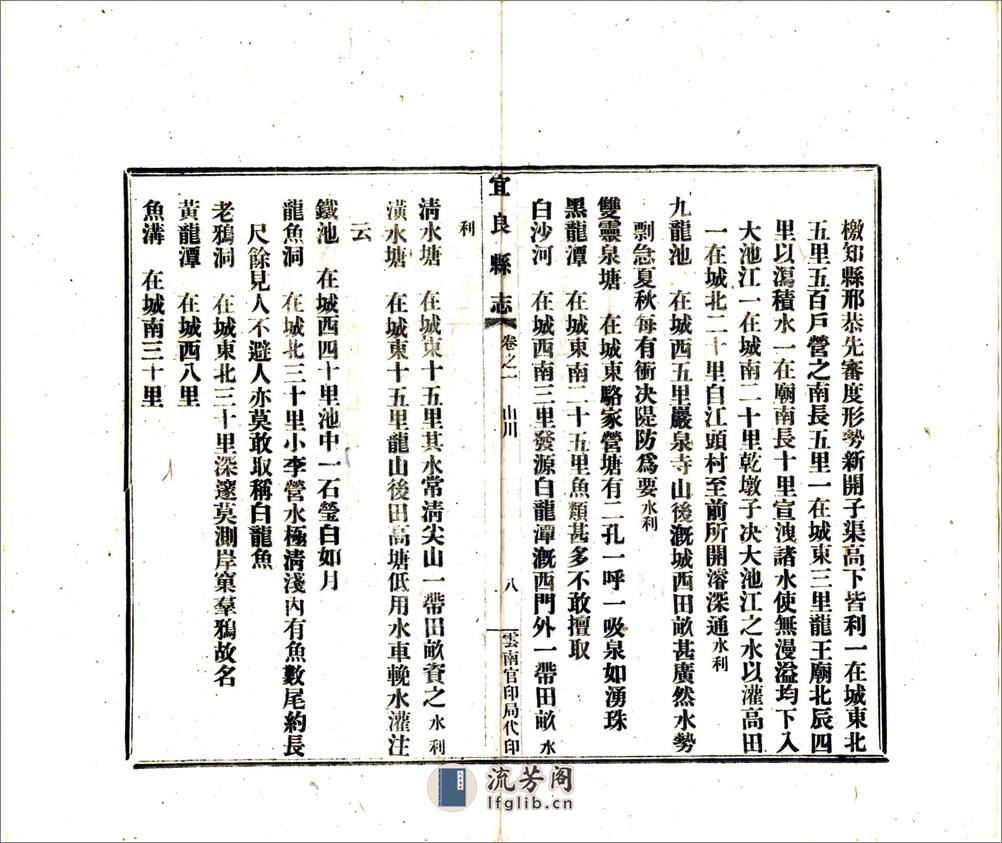 檄知縣邢恭先審度形勢新開子渠高下皆利一在城東北
五里五百戶營之南長五里一在城東三里龍王廟北辰四
里以瀉積水一在廟南長十里宣洩諸水使無漫溢均下入
大池江一在城南二十里乾墩子決大池江之水以灌高田
一在城北二十里自江頭村至前所開濬深通水利
九龍池 在城西五里巖泉寺山後溉城西田畝甚廣然水勢
剽急夏秋每有衝決隄防爲要水利
雙靈泉塘 在城東駱家營塘有二孔一呼一吸泉如湧珠
黑龍潭 在城東南二十五里魚類甚多不敢擅取
白沙河 在城西南三里發源白龍潭溉西門外一帶田畝水
宜良縣志 卷之一 山川 八 雲南官印局代印
利
清水塘 在城東十五里其水常清尖山一帶田畝資之水利
潢水塘 在城東十五里龍山後田高塘低用水車輓水灌注
云
鐵池 在城西四十里池中一石瑩白如月
龍魚洞 在城北三十里小李營水極清淺內有魚數尾約長
尺餘見人不避人亦莫敢取稱白龍魚
老鴉洞 在城東北三十里深邃莫測岸窠羣鴉故名
黃龍潭 在城西八里
魚溝 在城南三十里
流芳阁
lfglib.cn